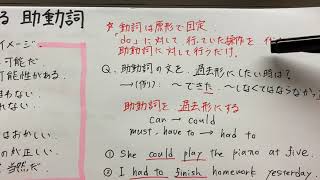 る 助動詞
イメージ
可能性
可能性がある.
れない.
はおかしい.
当然だ.
☆ 助動詞は原形で固定.
「do」に対して行っていた操作を
助動詞に対して行うだけ.
Q. 助動詞の文を、過去形にしたい時は?
→(例): 〜できた. 〜しなくてはならなか
助動詞を過去形にする
can → could
must, have to → had to
① She could play the piano at five.
② I had to finish homework yesterday.